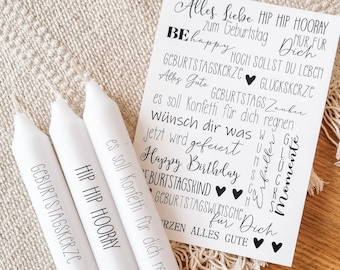 Alles Liebe HIP HIP HOORAY
zum Geburtstag
NUR FÜR
BE happy
Dich
HOCH SOLLST DU LEBEN
GEBURTSTAGSKERZE
Alles Gute
GLÜCKSKERZE
GEBURTSTAGSZauber
es soll Konfetti für dich regnen
wünsch dir was
jetzt wird gefeiert
WUNSCH
Erfüller
Momente
Happy Birthday
GEBURTSTAGSKIND
GEBURTSTAGSWÜNSCHE
für Dich
KERZEN ALLES GUTE
GEBURTSTAGSKERZE
HIP HIP HOORAY
es soll Konfetti für dich regnen